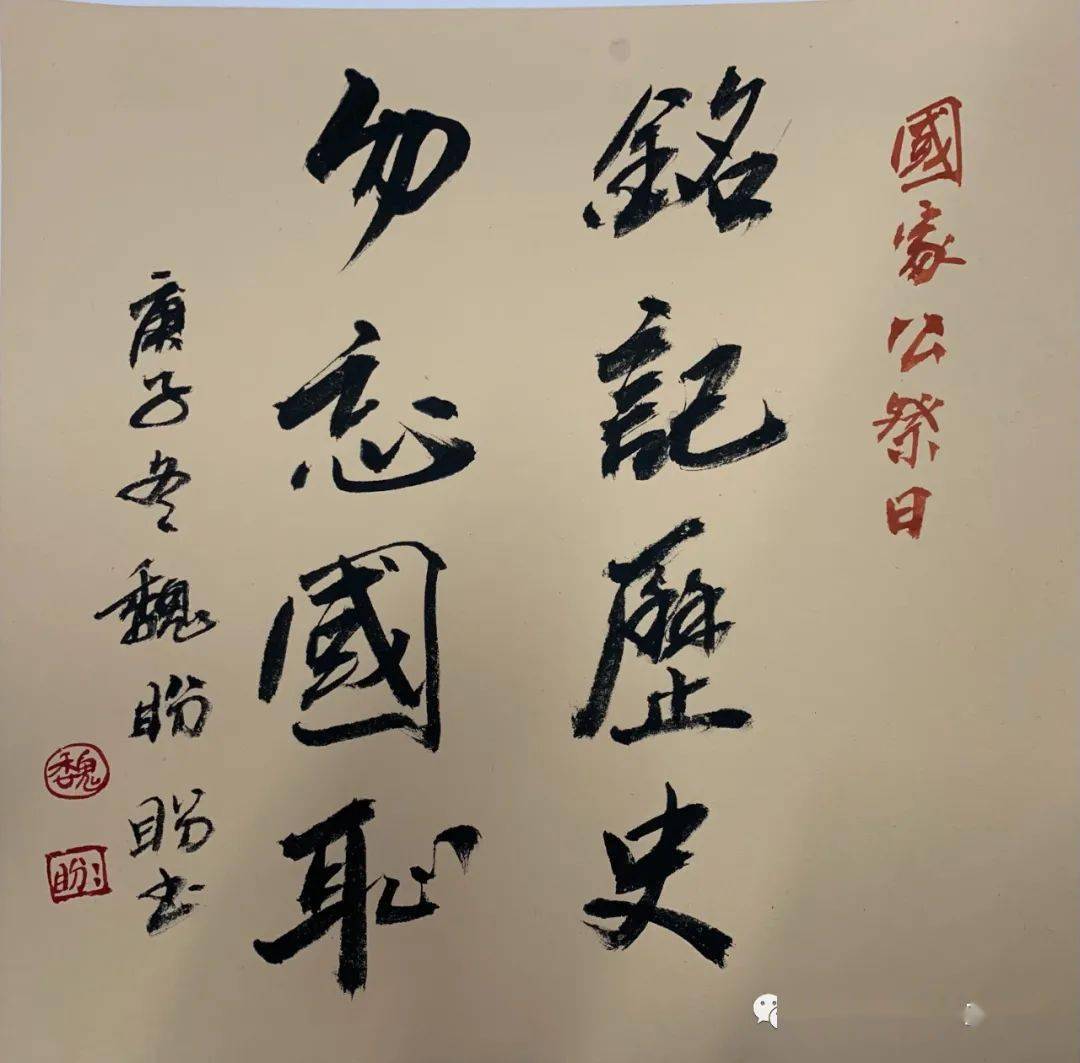 國家公祭日
銘記歷史
勿忘國恥
庚子冬魏盼盼书
魏
盼